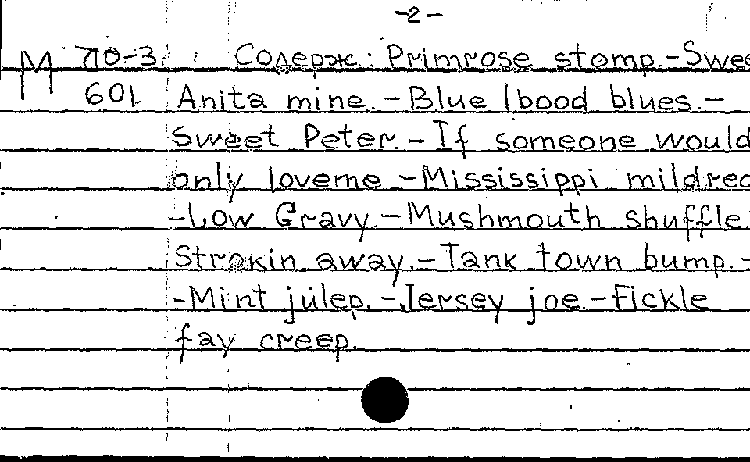 -2-
М 710-3 Содерж: Primrose stomp.-Swee
601 Anita mine.-Blue lbood blues.-
Sweet Peter.-If someone would
only loveme.-Mississippi mildred
-Low Gravy.-Mushmouth shuffle
Strokin away.-Tank town bump.-
-Mint julep.-Jersey joe.-Fickle
fay creep.